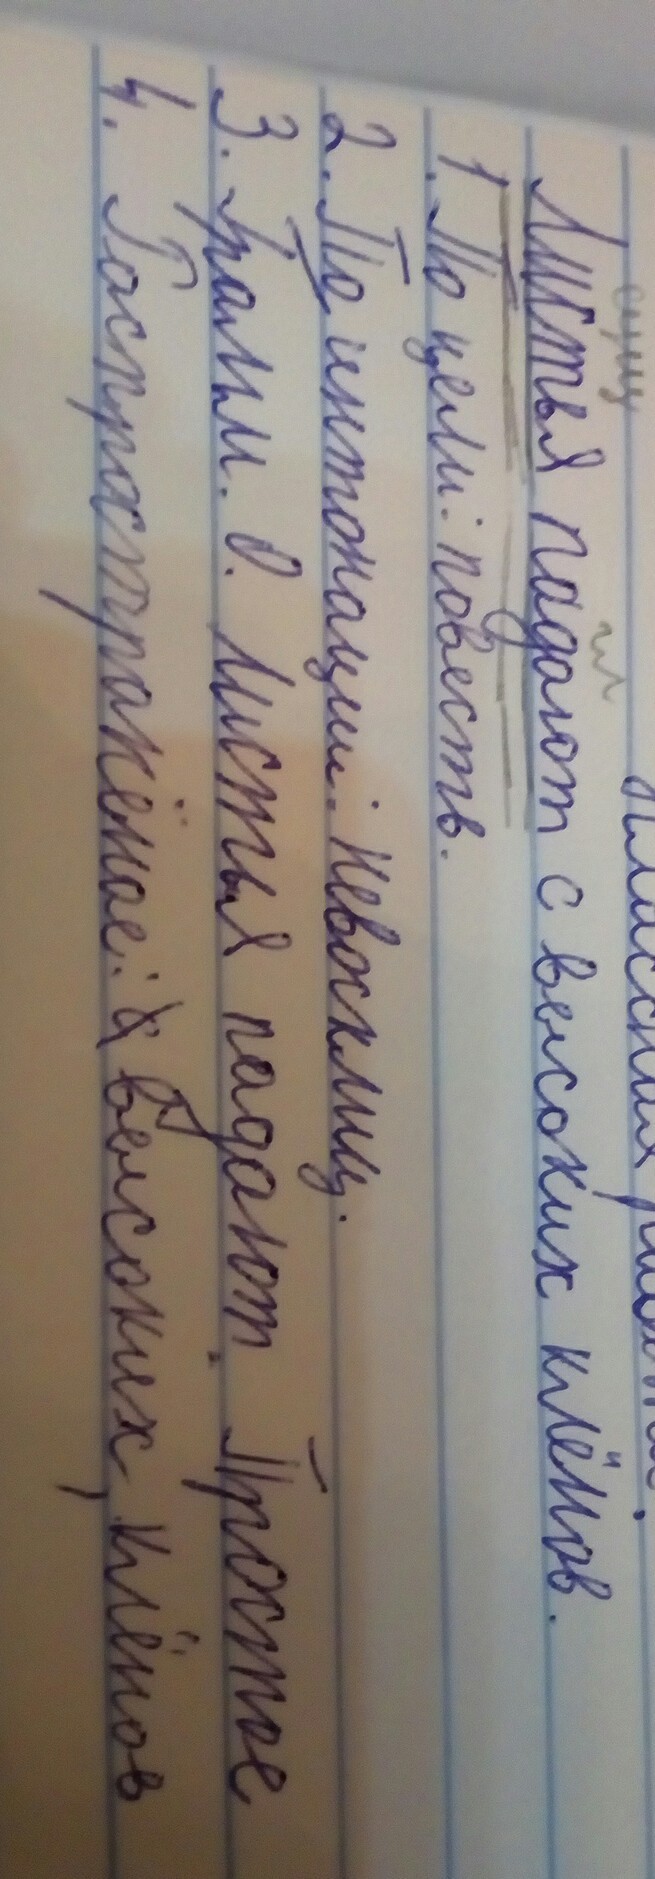 Классная работа.
сущ гл
Листья падают с высоких клёнов.
1. По цели: повеств.
2. По интонации: невосклиц.
3. Грамм. О. Листья падают. Простое
4. Распространённое: высоких, клёнов